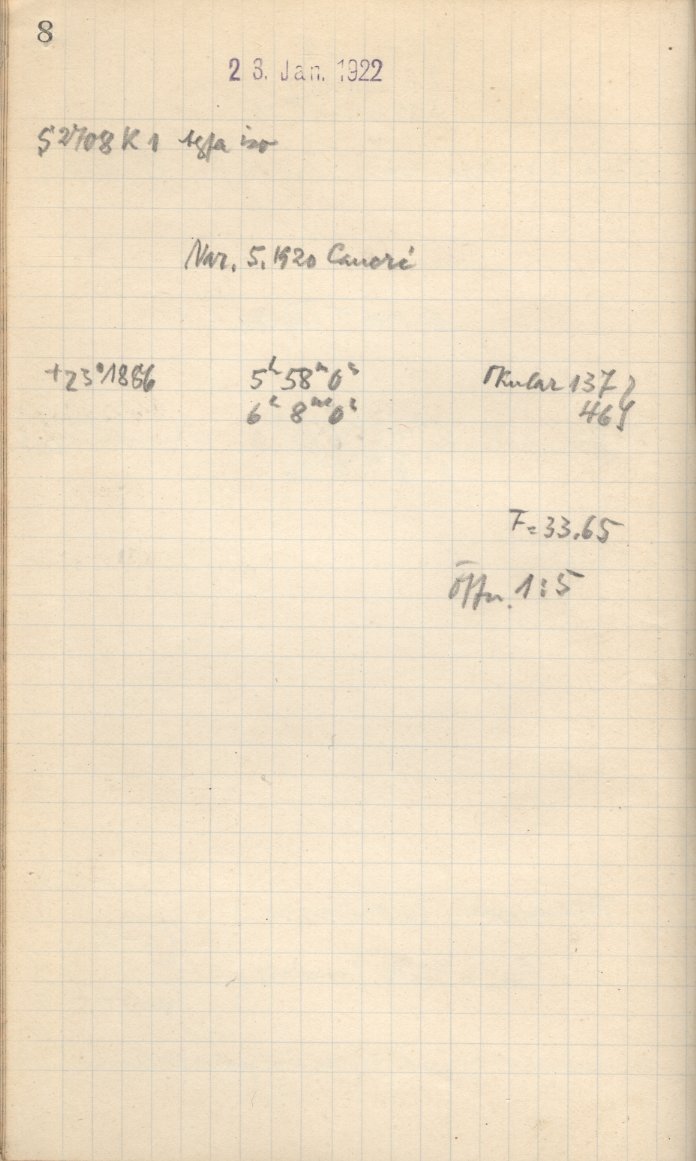 8
23. Jan. 1922
S 2708 K 1 Agfa iso
Var. 5.1920 Cancri
+23°1886 5ʰ 58ᵐ 0ˢ Okular 137
6ʰ 8ᵐ 0ˢ 46
F = 33.65
Öffn. 1:5